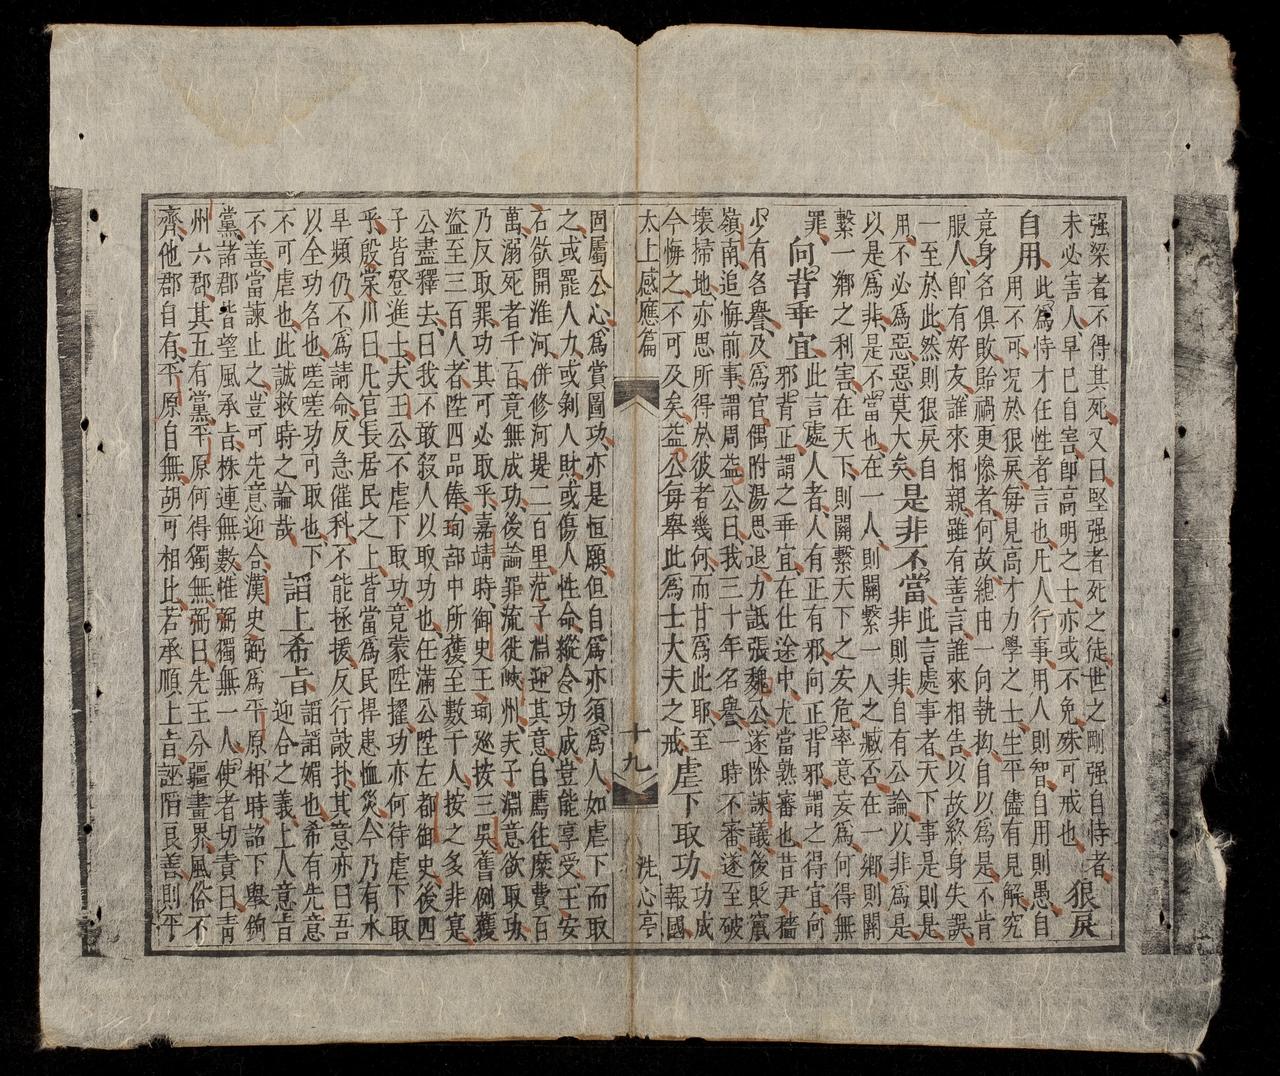 强梁者不得其死又曰堅强者死之徒世之剛强自恃者
未必害人早已自害即高明之士亦或不免殊可戒也 狠戾
自用 此爲恃才任性者言也凡人行事用人則智自用則愚自
用不可况於狠戾毎見高才力學之士生平儘有見解究
竟身名俱敗貽禍更慘者何故總由一向執拘自以爲是不肯
服人即有好友誰來相親雖有善言誰來相告以故終身失誤
一至於此然則狠戾自 是非不當 此言處事者天下事是則是
用不必爲惡惡莫大矣 非則非自有公論以非爲是
以是爲非是不當也在一人則關繫一人之臧否在一鄉則關
繫一鄉之利害在天下則關繫天下之安危率意妄爲何得無
罪 向背乖宜 此言處人者人有正有邪向正背邪謂之得宜向
邪背正謂之乖宜在仕途中尤當熟審也昔尹穡
少有名譽及爲官偶附湯思退力詆張魏公遂除諫議後貶竄
嶺南追悔前事謂周益公曰我三十年名譽一時不審遂至破
壞掃地亦思所得於彼者幾何而甘爲此耶至
今悔之不可及矣益公每舉此爲士大夫之戒 虐下取功 功成
報國
太上感應篇 十九 洗心亭
固屬公心爲賞圖功亦是恒願但自爲亦須爲人如虐下而取
之或罷人力或剝人財或傷人性命縱令功成豈能享受王安
石欲開淮河併修河堤二百里范子淵迎其意自薦往糜費百
萬溺死者千百竟無成功後論罪流徙峽州夫子淵意欲取功
乃反取罪功其可必取乎嘉靖時御史王珣廵按三吳舊例獲
盜至三百人者陞四品俸珣部中所獲至數千人按之多非寔
公盡釋去曰我不敢殺人以取功也任滿公陞左都御史後四
子皆登進士夫王公不虐下取功竟蒙陞擢功亦何待虐下取
乎殷棠川曰凡官長居民之上皆當爲民捍患恤災今乃有水
旱頻仍不爲請命反急催科不能拯援反行敲扑其意亦曰吾
以全功名也嗟嗟功可取也下 謟上希㫖 謟謟媚也希有先意
不可虐也此誠救時之論哉 迎合之義上人意㫖
不善當諫止之豈可先意迎合漢史弼爲平原相時詔下舉鉤
黨諸郡皆望風承㫖株連無數惟弼獨無一人使者切責曰靑
州六郡其五有黨平原何得獨無弼曰先王分疆畫界風俗不
齊他郡自有平原自無胡可相比若承順上㫖誣陷良善則平